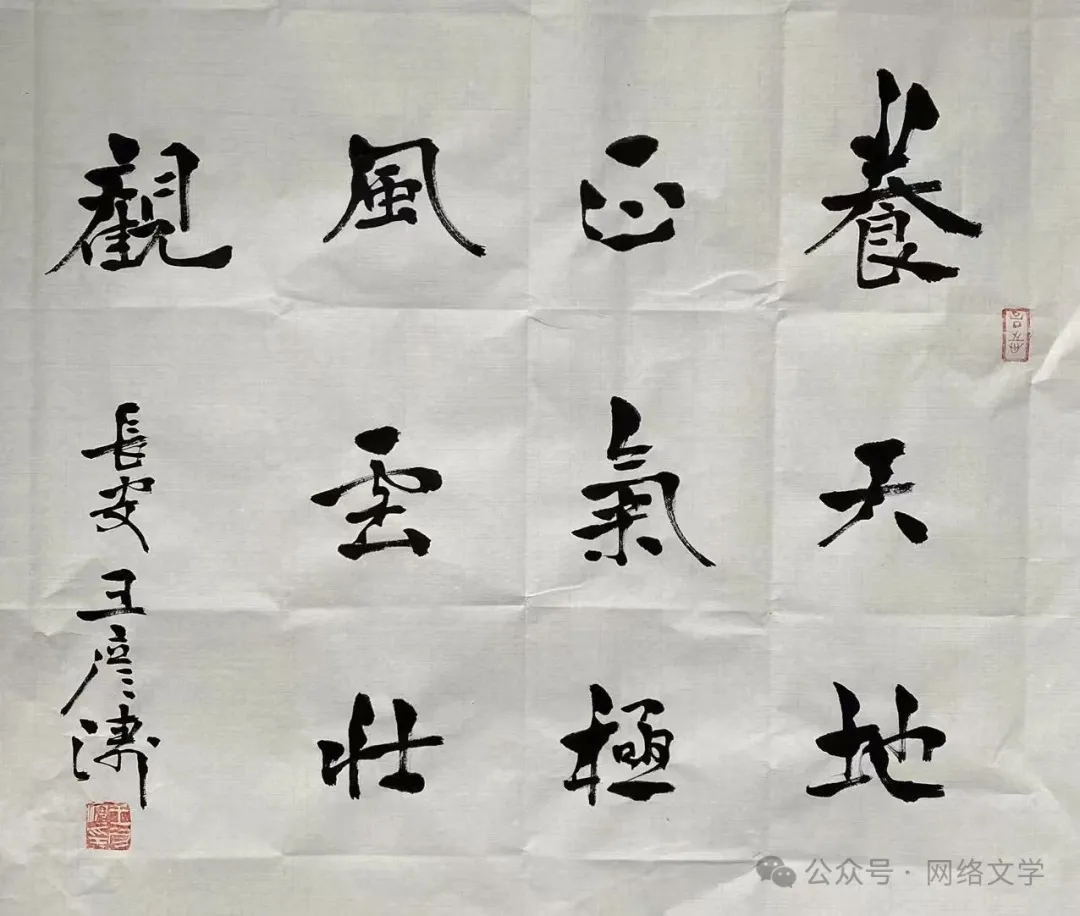 養天地
正氣極
風雲壯
觀
長安 王彦濤
公众号·网络文学